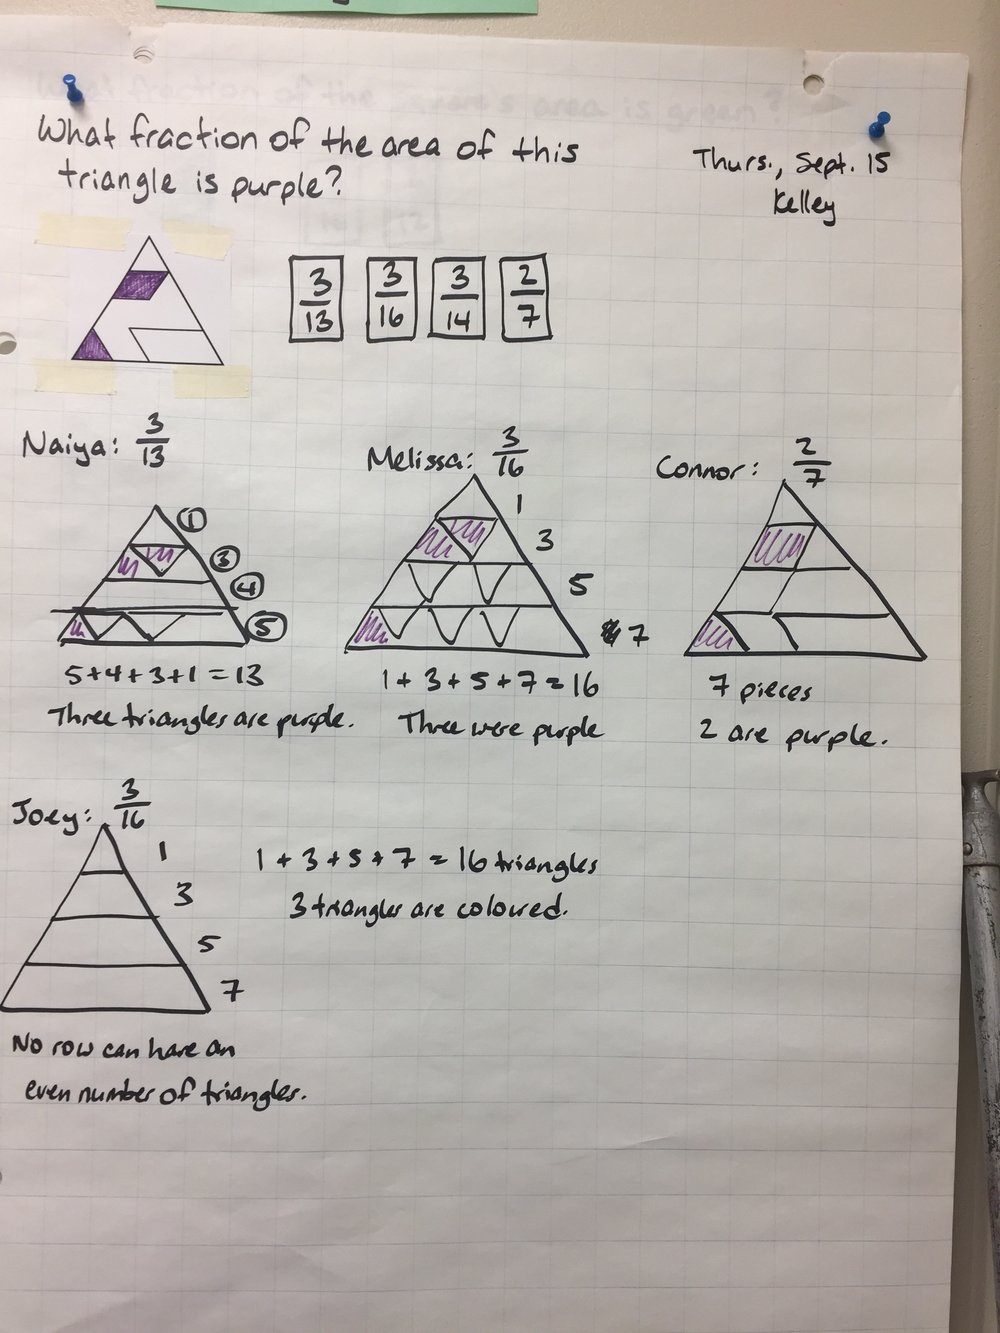 What fraction of the area of this
triangle is purple?
Thurs., Sept. 15
Kelley
3/13
3/16
3/14
2/7
Naiya: 3/13
①
③
④
⑤
5+4+3+1=13
Three triangles are purple.
Melissa: 3/16
1
3
5
7
1+3+5+7=16
Three were purple
Connor: 2/7
7 pieces
2 are purple.
Joey: 3/16
1
3
5
7
1+3+5+7=16 triangles
3 triangles are coloured.
No row can have an
even number of triangles.